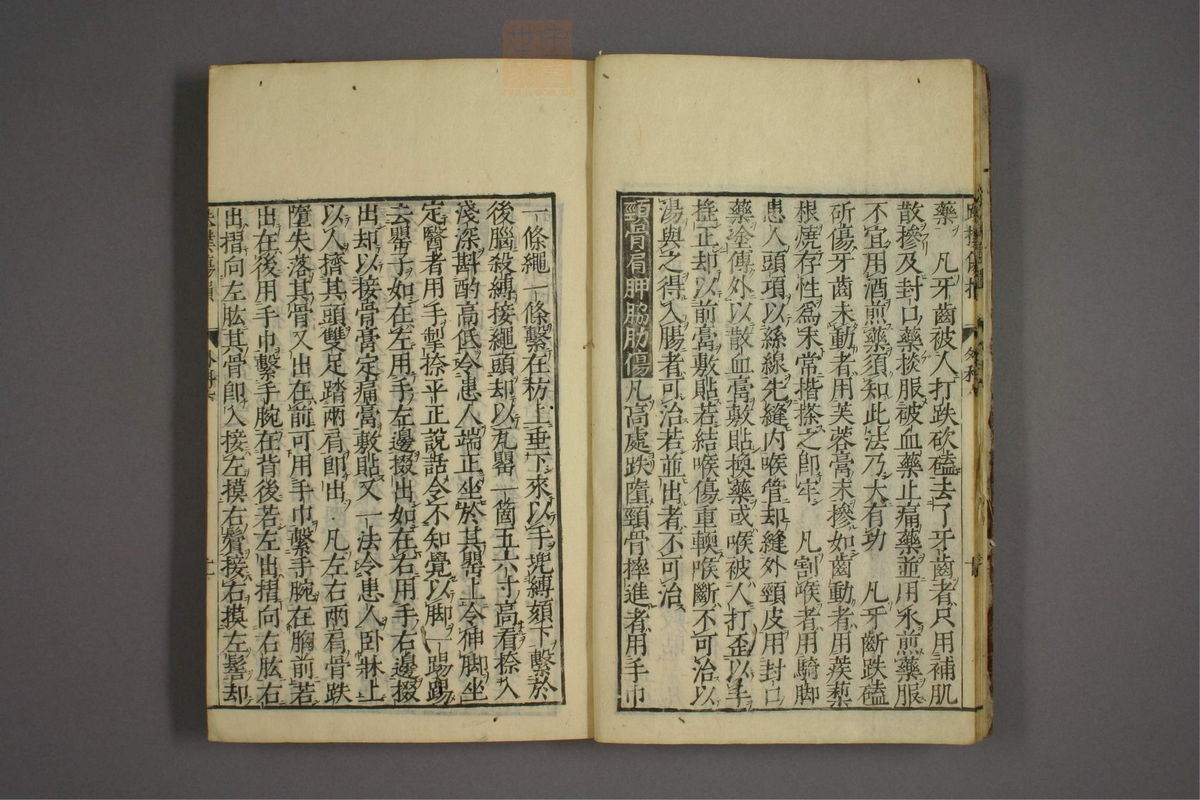 藥 凡牙齒被人打跌砍磕去了牙齒者只用補肌
散摻及封口藥掞服被血藥止痛藥並用水煎藥服
不宜用酒煎藥須知此法乃大有功 凡牙斷跌磕
斫傷牙齒未動者用芙蓉膏末摻如齒動者用蒺藜
根燒存性為末常揩搽之即牢 凡割喉者用騎脚
患人頭項以絲線先縫內喉管却縫外頸皮用封口
藥塗傅外以散血膏敷貼換藥或喉被人打歪以手
搓正却以前膏敷貼若結喉傷重軟喉斷不可治以
湯與之得入腸者可治若並出者不可治
頸骨肩胛脇肋傷凡高處跌墮頸骨摔進者用手巾
一條繩一條繫在枋上垂下來以手兜縛頦下繫於
後腦殺縛接繩頭却以瓦罌一箇五六寸高看捺入
淺深斟酌高低令患人端正坐於其罌上令伸脚坐
定醫者用手掣捺平正說話令不知覺以脚一踢踢
去罌子如在左用手左邊掇出如在右用手右邊掇
出却以接骨膏定痛膏敷貼又一法令患人卧牀上
以人擠其頭雙足踏兩肩即出 凡左右兩肩骨跌
墮失落其骨叉出在前可用手巾繫手腕在胸前若
出在後用手巾繫手腕在背後若左出摺向右肱右
出摺向左肱其骨即入接左摸右鬢接右摸左髻却